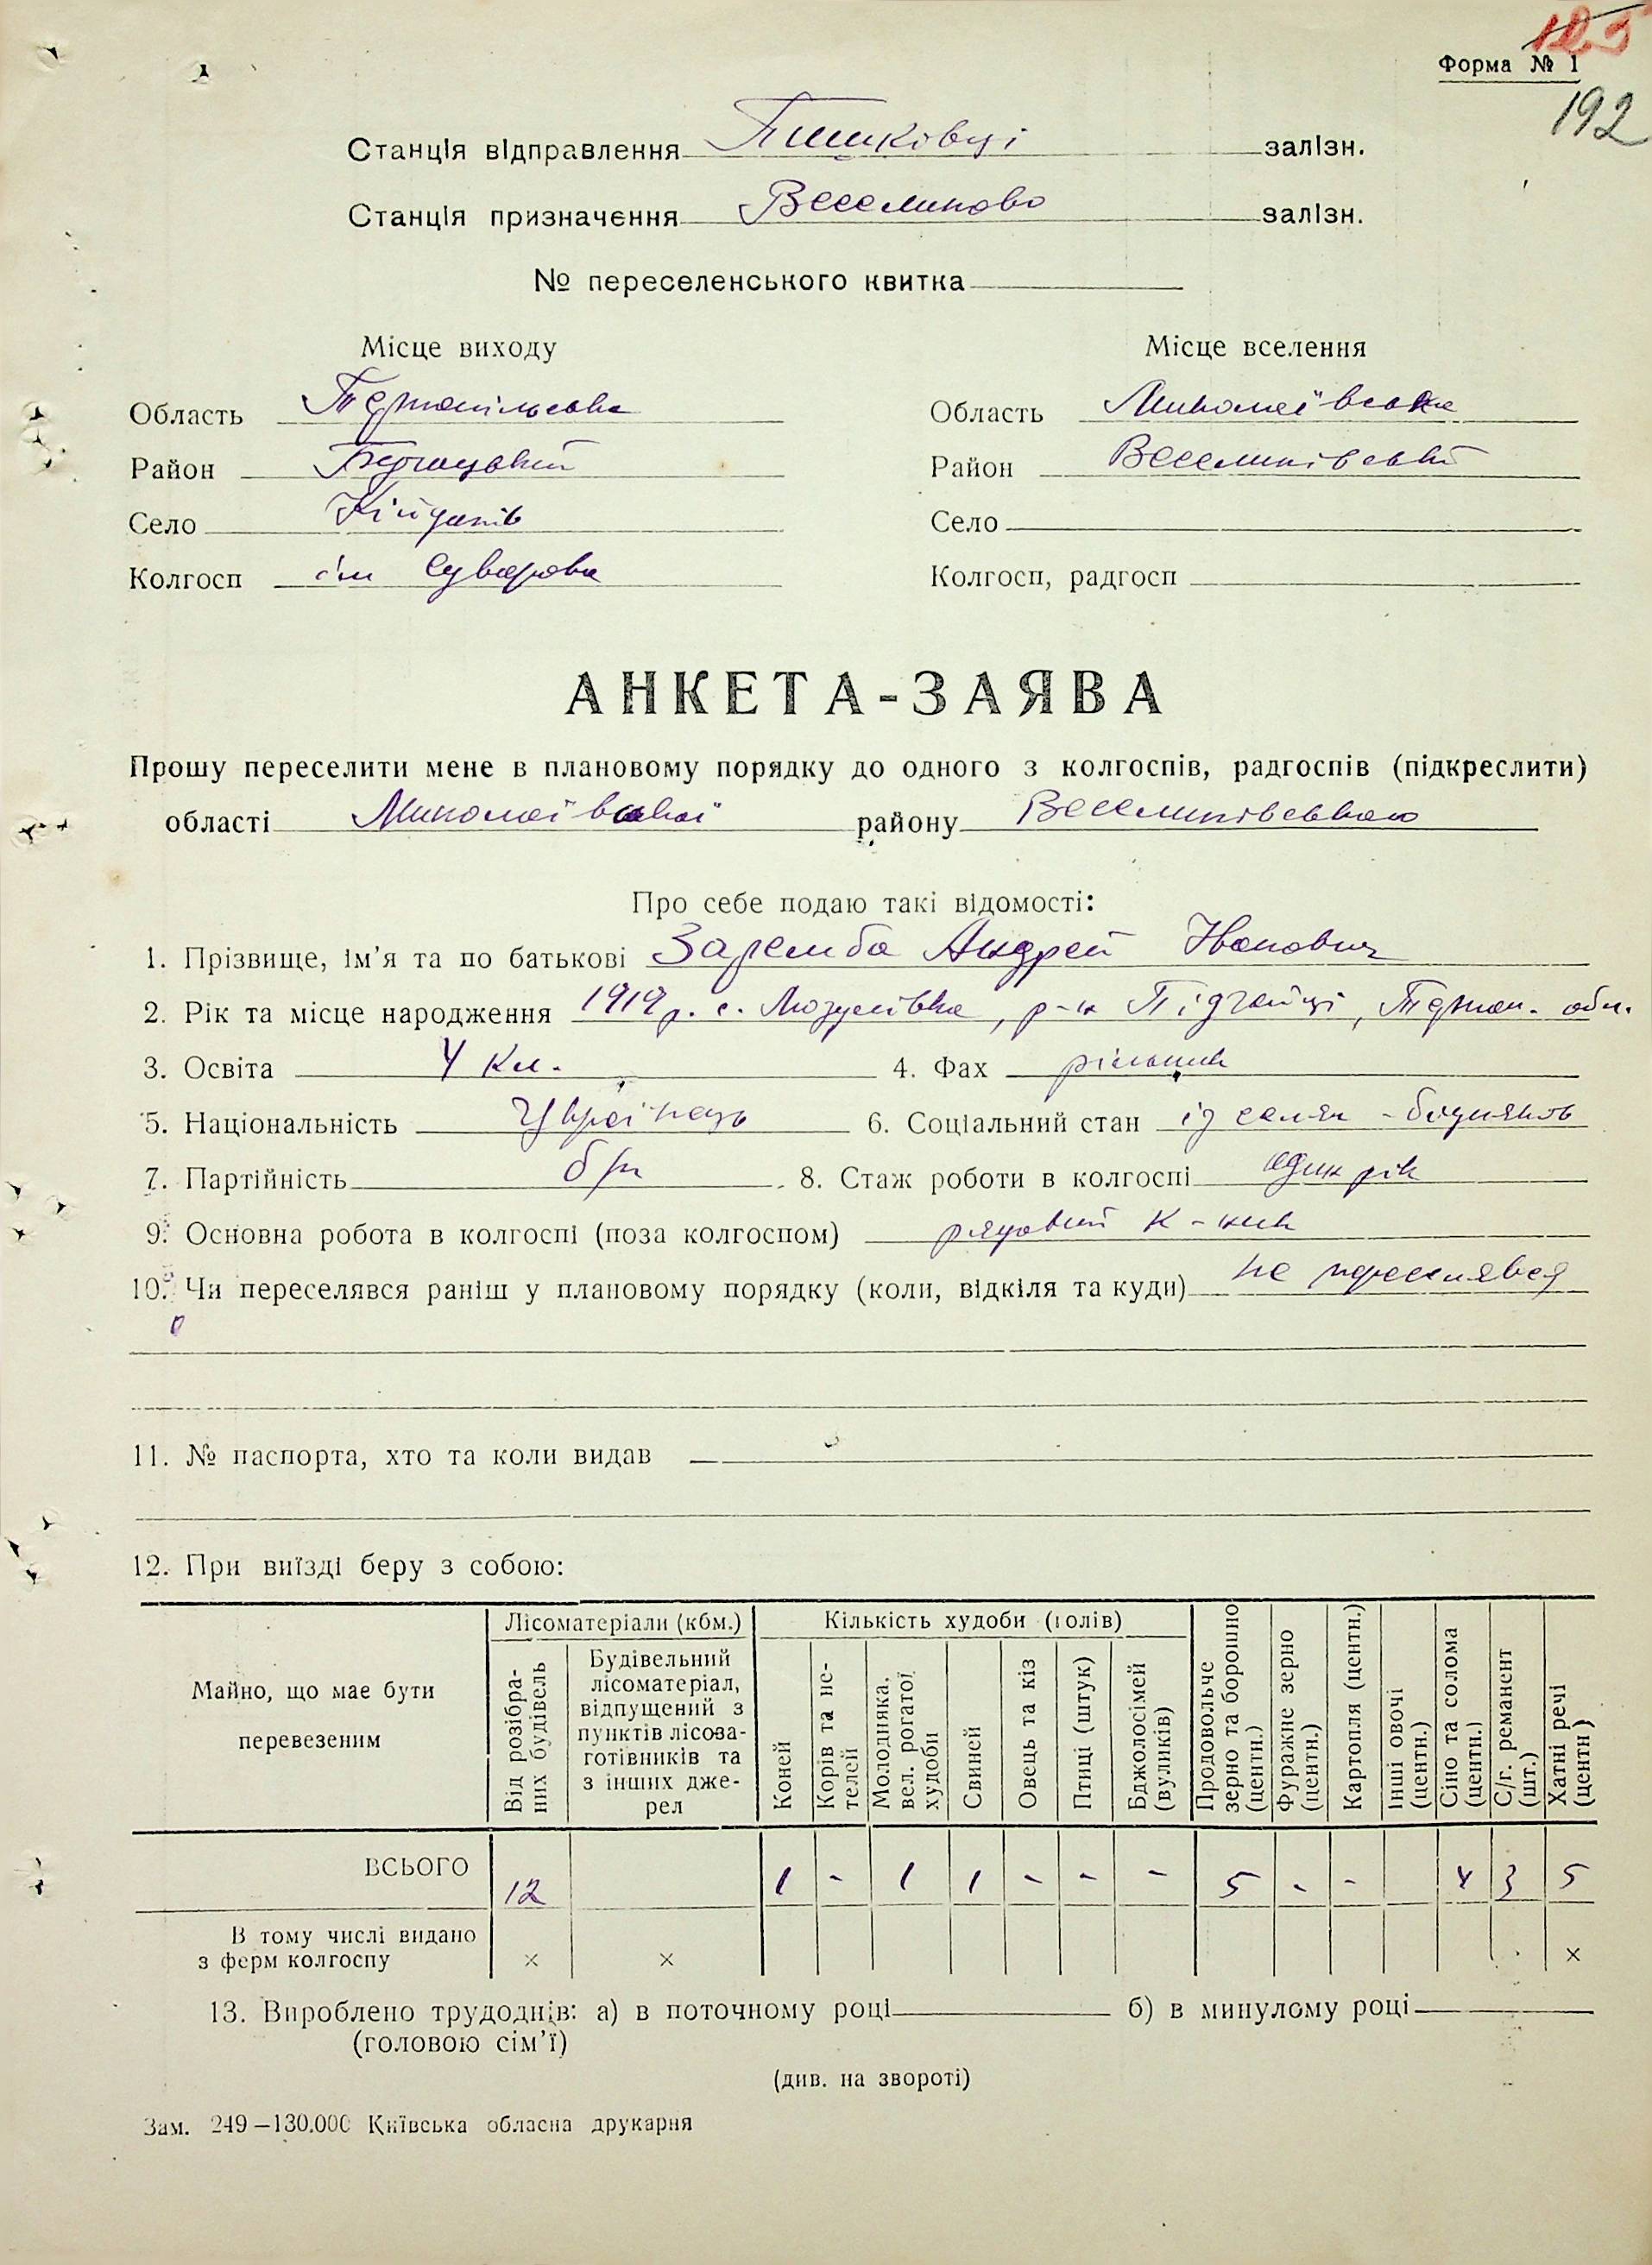 125
Форма № 1
192
Станція відправлення Пишківці залізн.
Станція призначення Веселиново залізн.
№ переселенського квитка
Місце виходу Місце вселення
Область Тернопільська Область Миколаївська
Район Бучацький Район Веселинівський
Село Кійданів Село
Колгосп ім Суворова Колгосп, радгосп
АНКЕТА-ЗАЯВА
Прошу переселити мене в плановому порядку до одного з колгоспів, радгоспів (підкреслити)
області Миколаївської району Веселинівського
Про себе подаю такі відомості:
1. Прізвище, ім'я та по батькові Заремба Андрей Іванович
2. Рік та місце народження 1919 р. с. Мозулівка, р-н Підгайці, Терноп. обл.
3. Освіта 4 кл. 4. Фах рільник
5. Національність Українець 6. Соціальний стан із селян-бідняків
7. Партійність б/п 8. Стаж роботи в колгоспі один рік
9. Основна робота в колгоспі (поза колгоспом) рядовий к-ник
10. Чи переселявся раніш у плановому порядку (коли, відкіля та куди) не переселявся
11. № паспорта, хто та коли видав
12. При виїзді беру з собою:
Майно, що має бути перевезеним
Лісоматеріали (кбм.)
Від розібраних будівель
Будівельний лісоматеріал, відпущений з пунктів лісозаготівників та з інших джерел
Кількість худоби (голів)
Коней
Корів та нетелей
Молодняка, вел. рогатої худоби
Свиней
Овець та кіз
Птиці (штук)
Бджолосімей (вуликів)
Продовольче зерно та борошно (центн.)
Фуражне зерно (центн.)
Картопля (центн.)
Інші овочі (центн.)
Сіно та солома (центн.)
С/г. реманент (шт.)
Хатні речі (центн)
ВСЬОГО 12 1 - 1 1 - - - 5 - - 4 3 5
В тому числі видано з ферм колгоспу × × ×
13. Вироблено трудоднів: а) в поточному році б) в минулому році
(головою сім'ї)
(див. на звороті)
Зам. 249—130.000 Київська обласна друкарня